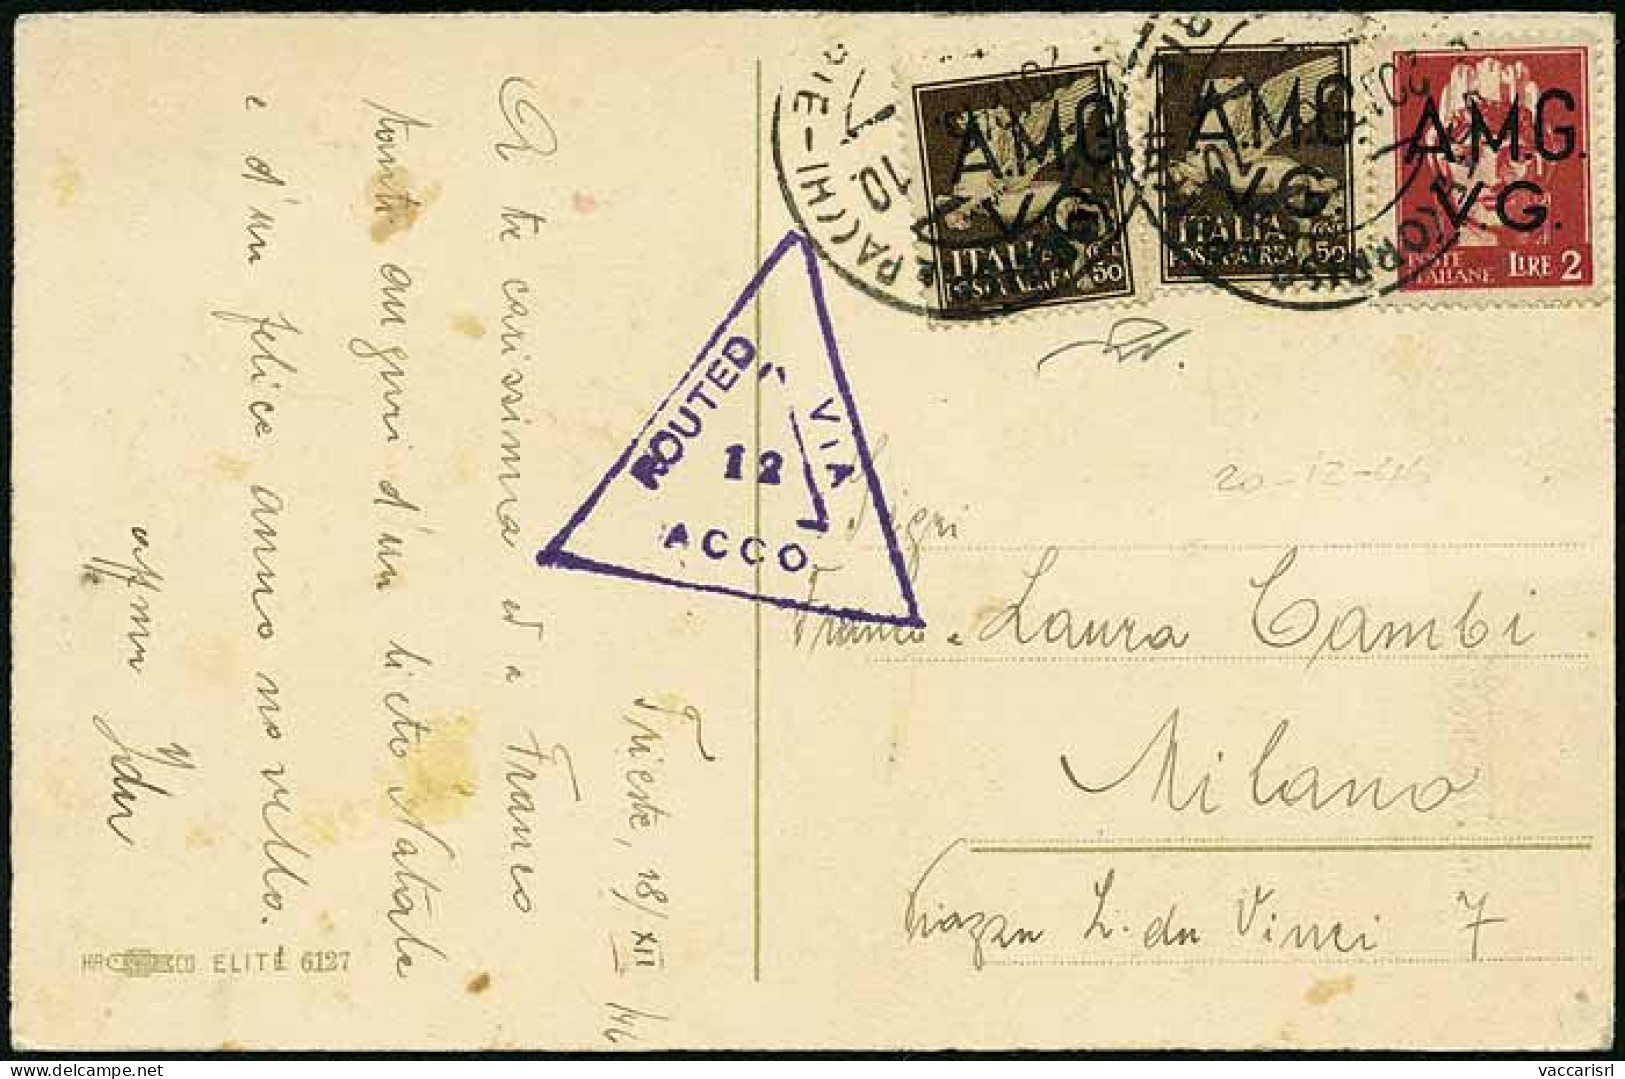 Trieste, 18/XII/46
A te carissima ed a Franco
tanti auguri d'un lieto Natale
e d'un felice anno novello.
aff.ma
ELITE 6127
ROUTED VIA
12
ACCO
A.M.G.
V.G.
ITALIA
POSTA AEREA
50
A.M.G.
V.G.
ITALIA
POSTA AEREA
50
A.M.G.
V.G.
POSTE ITALIANE
LIRE 2
20-12-46
Sigri
Franco e Laura Cambi
Milano
Piazza L. da Vinci 7
vaccarisrl